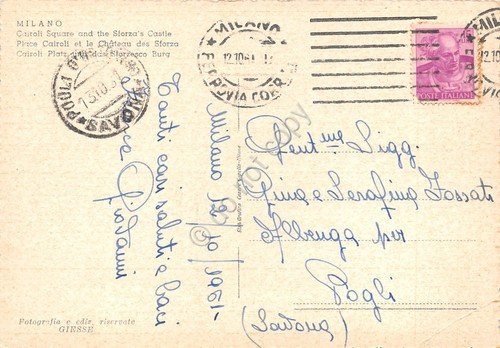 MILANO
Cairoli Square and the Sforza's Castle
Place Cairoli et le Château des Sforza
Cairoli Platz und das Sforza Burg
MILANO
12.10.61
FERROVIA
POSTE ITALIANE
MILAN
12.10
SAVONA
Milano 12/10/1961-
Tanti cari saluti e baci
Giovanni
Gent.me Sigg.
Rina e Serafina Fossati
Albenga per
Pogli
(Savona)
Fotografia e ediz. riservate
GIESSE
© do not copy